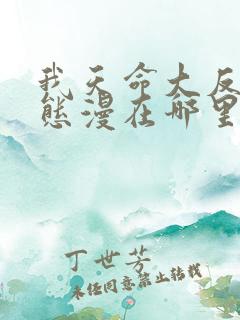 我天命大反
态漫在哪里
丁世芳
未经同意禁止转载